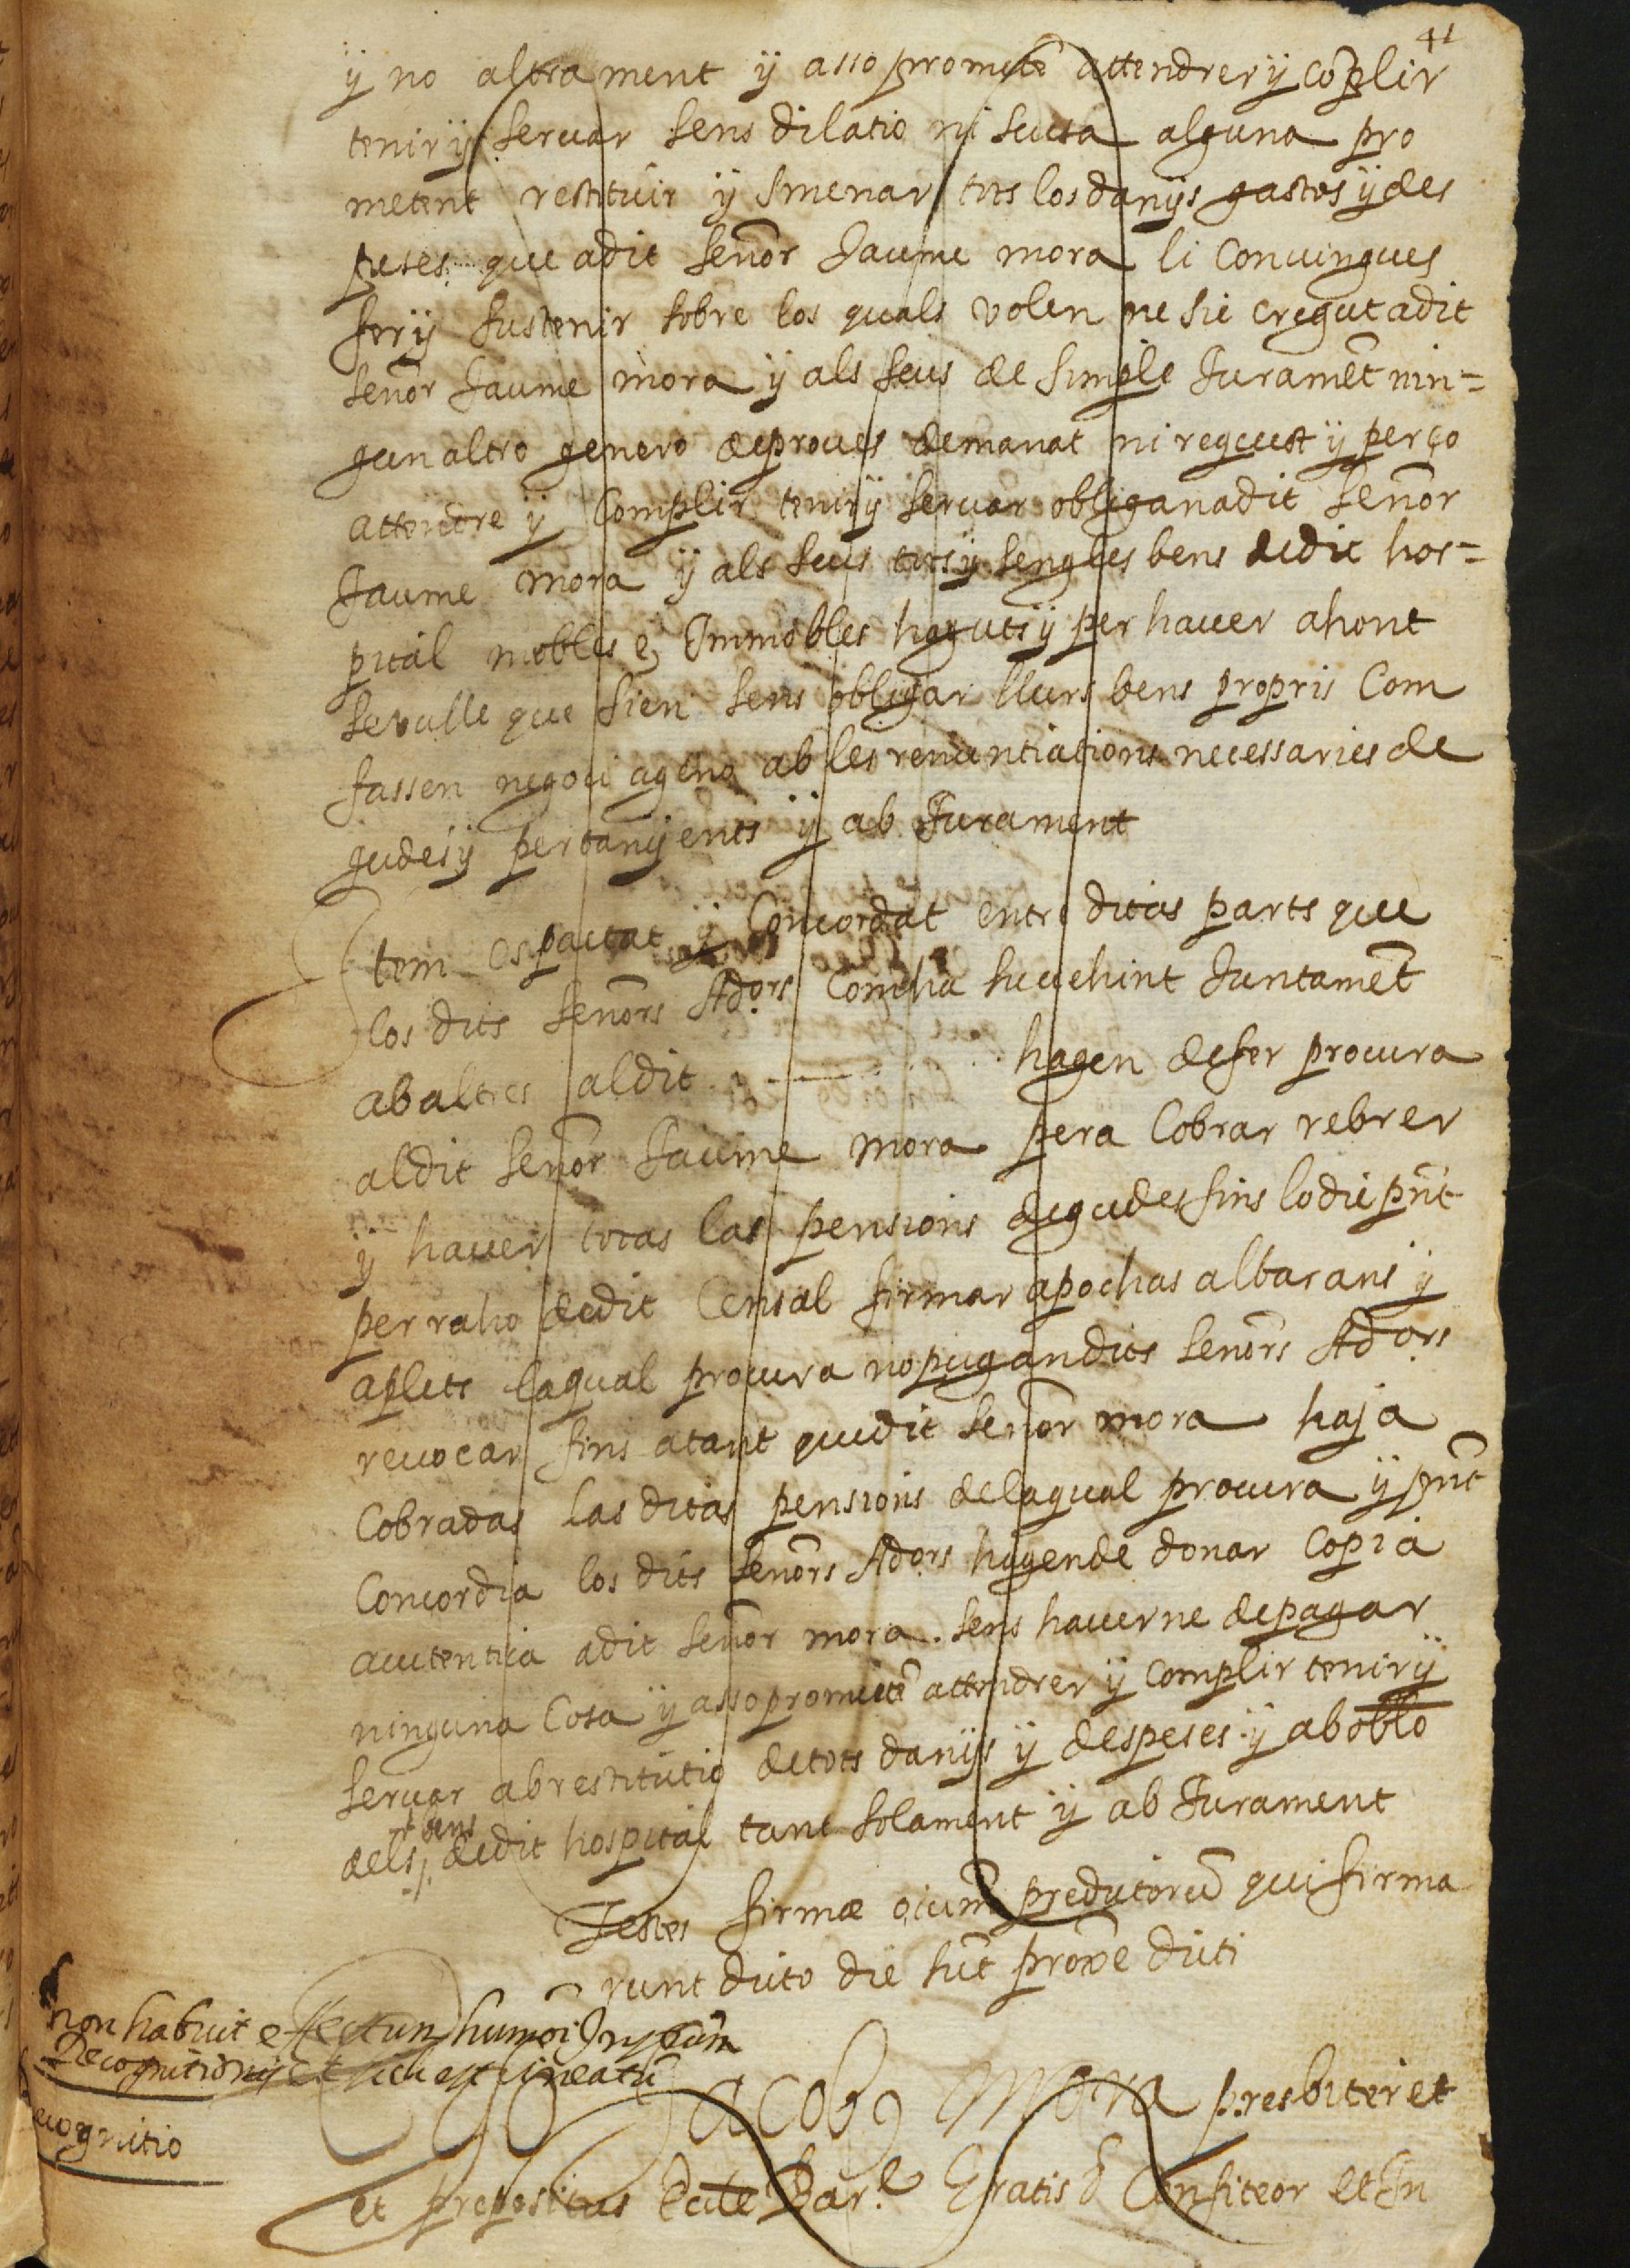 41
ÿ no altrament ÿ asso prometē attendrer ÿ cōplir
tenir ÿ seruar sens dilatio ni scusa alguna pro
metent restituir ÿ smenar tots los danÿs gastos ÿ des
peses que a dit señor Jaume mora li conuingues
fer ÿ sustenir sobre los quals volen ne sie cregut a dit
señor Jaume mora ÿ als seus de simple Juramēt nin=
gun altro genero de proues demanat ni request ÿ perço
attendre ÿ complir tenir ÿ seruar obligan a dit señor
Jaume mora ÿ als seus tots ÿ sengles bens de dit hos=
pital mobles e Immobles haguts ÿ per hauer ahont
se vulle que sien sens obligar llurs bens propris com
fassen negoci ageno ab les renuntiations necessaries de
gudes ÿ pertanÿents ÿ ab Jurament
Item es pactat ÿ concordat entre ditas parts que
los dits señors Ad.ors com ha succehint Juntamēt
ab altres al dit hagen de fer procura
al dit señor Jaume mora pera cobrar rebrer
ÿ hauer totas las pensions degudes fins lo die pn̄t
per raho de dit censal firmar apochas albarans ÿ
aplets la qual procura no pugan dits señors Ad.ors
reuocar fins a tant que dit señor mora haja
cobradas las ditas pensions de la qual procura ÿ pn̄t
concordia los dits señors Ad.ors hagen de donar copia
autentica a dit señor mora. sens hauerne de pagar
ninguna cosa ÿ asso prometē attendrer ÿ complir tenir ÿ
seruar ab restitutio de tots danÿs ÿ despeses ÿ ab obl̄o
bens
dels de dit hospital tant solament ÿ ab Jurament
Testes firmæ oium predictorū qui firma
runt dicto die sūt proxe dicti
non habuit effectum humoi Inst̄um
Recognitionis et sich est lineatū
Recognitio
Ego Jacobꝯ Mora presbiter et
et prepositus Eccle Bar.e Gratis &c Confiteor et In